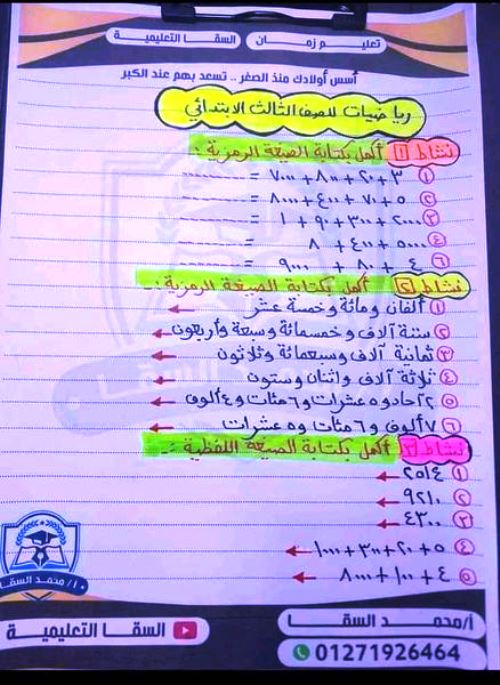 تعليم زمان | السقا التعليمية
أسس أولادك منذ الصغر .. تسعد بهم عند الكبر
رياضيات للصف الثالث الابتدائي
نشاط ١ أكمل بكتابة الصيغة الرمزية :
① ٣ + ٢٠ + ٨٠٠ + ٧٠٠٠ =
② ٥ + ٧٠ + ٤٠٠ + ٨٠٠٠ =
③ ٢٠٠٠ + ٣٠٠ + ٩٠ + ١ =
④ ٥٠٠٠ + ٤٠٠ + ٨ =
⑥ ٤ + ٨٠ + ٩٠٠٠ =
نشاط ٢ أكمل بكتابة الصيغة الرمزية :-
① ألفان ومائة وخمسة عشر ←
② ستة آلاف وخمسمائة وسبعة وأربعون ←
③ ثمانية آلاف وسبعمائة وثلاثون ←
④ ثلاثة آلاف واثنان وستون ←
⑤ ٢ آحاد و ٥ عشرات و ٦ مئات و ٤ ألوف ←
⑥ ٧ ألوف و ٦ مئات و ٥ عشرات ←
نشاط ٣ أكمل بكتابة الصيغة اللفظية :-
① ٢٥١٤ ←
② ٩٢١٠ ←
③ ٤٣٠٠ ←
④ ٥ + ٢٠ + ٣٠٠ + ١٠٠٠ ←
⑤ ٤ + ١٠٠ + ٨٠٠٠ ←
أ/ محمد السقا
أ/محمد السقا
السقا التعليمية
01271926464